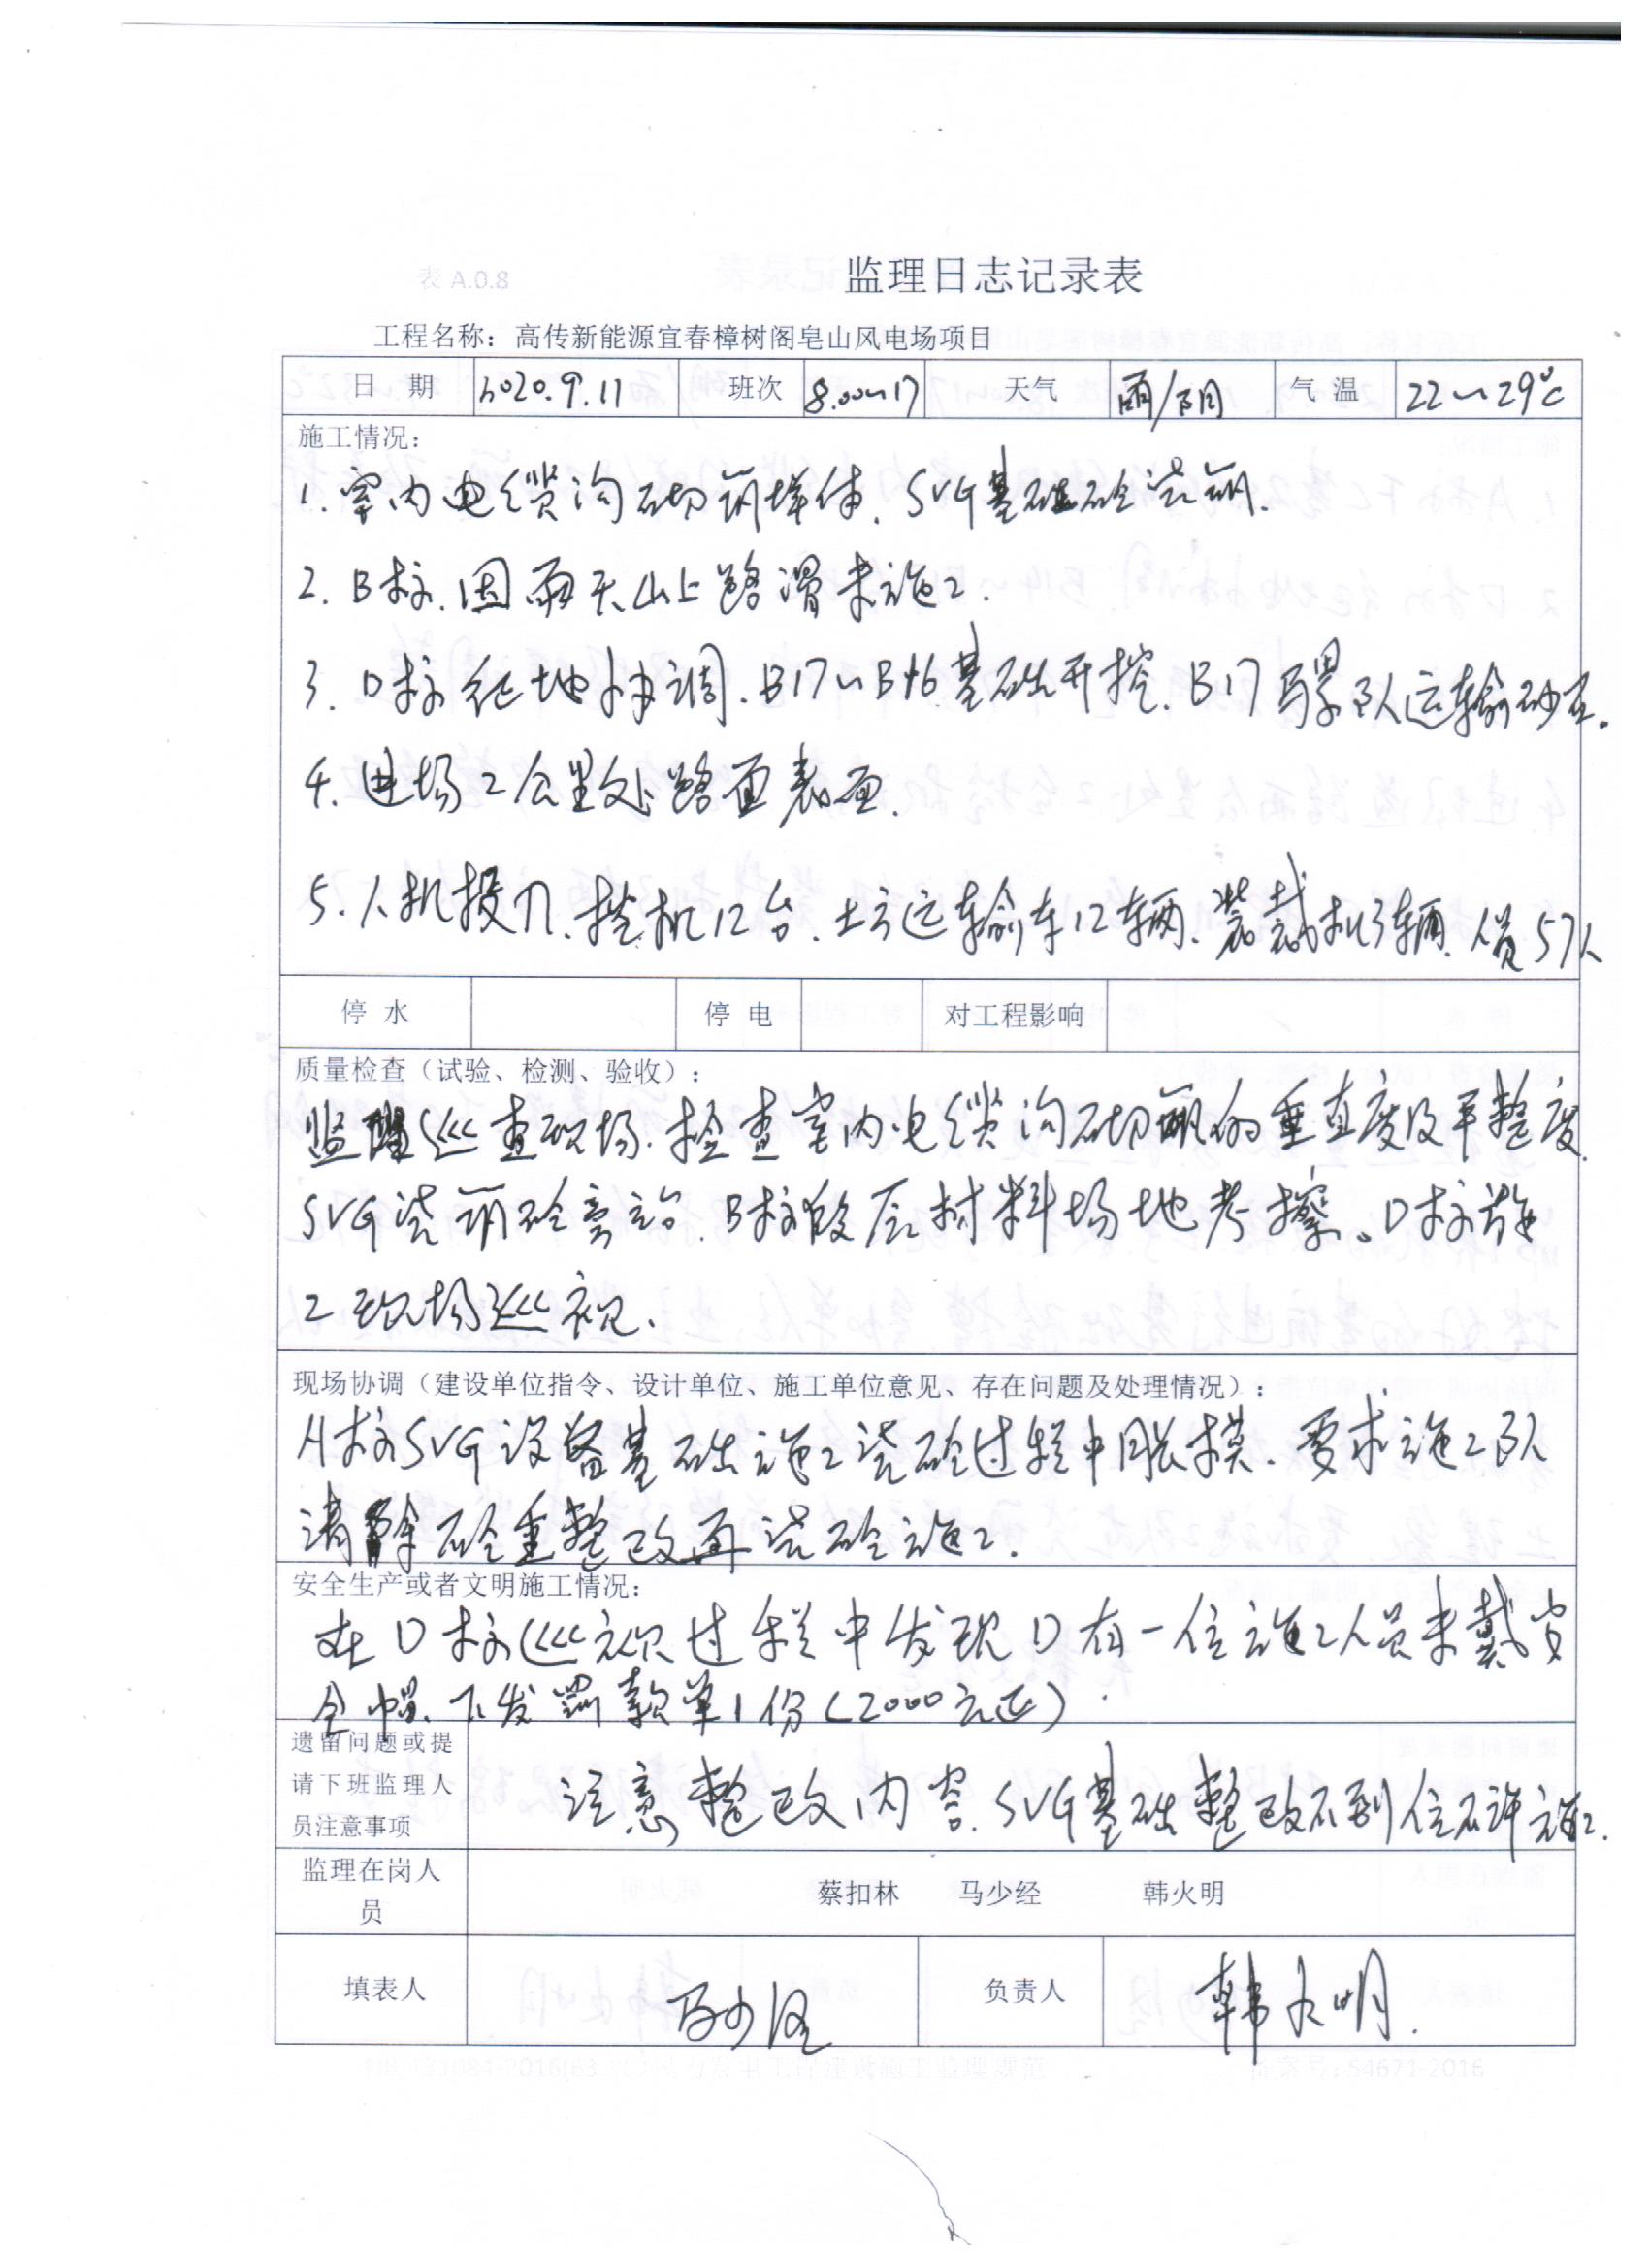 表 A.0.8
监理日志记录表
工程名称：高传新能源宜春樟树阁皂山风电场项目
日 期 2020.9.11 班次 8.00~17 天气 雨/阴 气 温 22~29℃
施工情况：
1. 室内电缆沟砌筑墙体、SVG基础砼浇筑.
2. B标.因雨天山上路滑未施工.
3. D标征地协调.B17~B16基础开挖.B17骡队运输砂石.
4. 进场2公里处路面表面.
5. 人机投入.挖机12台.土方运输车12辆.装载机3辆.人员57人
停 水 停 电 对工程影响
质量检查（试验、检测、验收）：
监理巡查现场.检查室内电缆沟砌筑的垂直度及平整度.
SVG浇筑砼旁站.B标 材料场地考擦。D标施
工现场巡视.
现场协调（建设单位指令、设计单位、施工单位意见、存在问题及处理情况）：
A标SVG设备基础施工浇砼过程中胀模.要求施工队
清除砼重整改再浇砼施工.
安全生产或者文明施工情况：
在D标巡视过程中发现D有一位施工人员未戴安
全帽.下发罚款单1份(2000元正).
遗留问题或提
请下班监理人
员注意事项
注意整改内容.SVG基础整改不到位不许施工.
监理在岗人
员
蔡扣林 马少经 韩火明
填表人 马少经 负责人 韩火明.
备案号：54671-2016